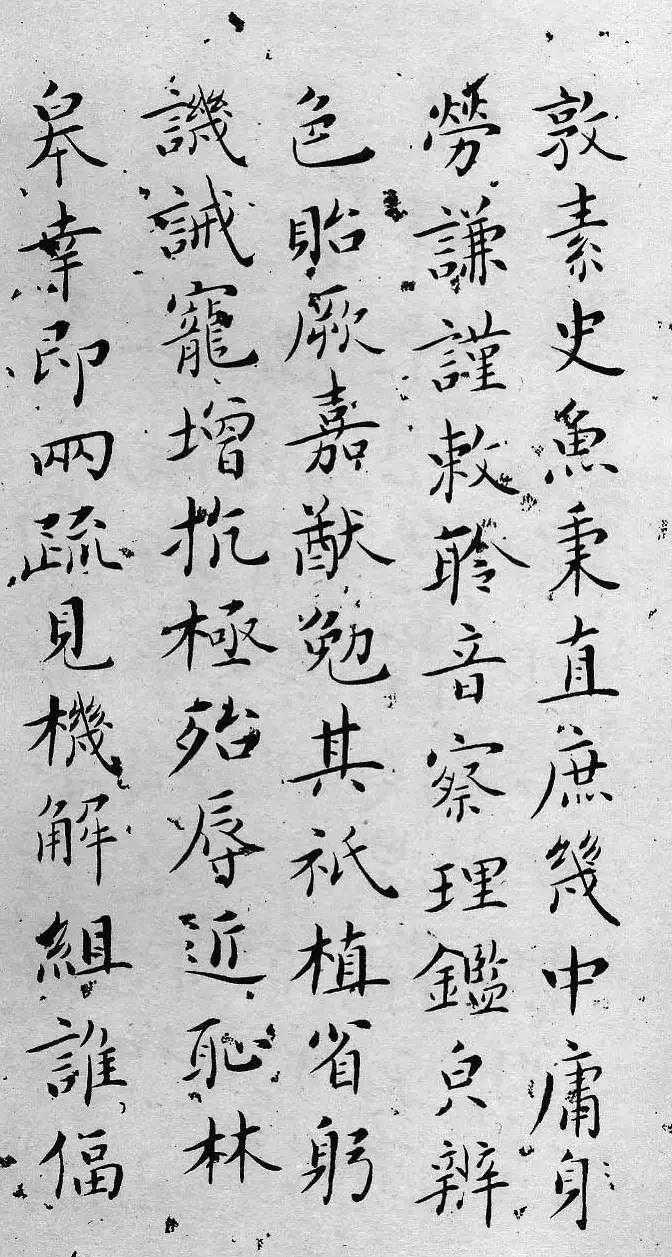 敦素史魚秉直庶幾中庸
勞謙謹敕聆音察理鑑皃辨
色貽厥嘉猷勉其祗植省躬
譏誡寵增抗極殆辱近恥林
皋幸即兩疏見機解組誰偪